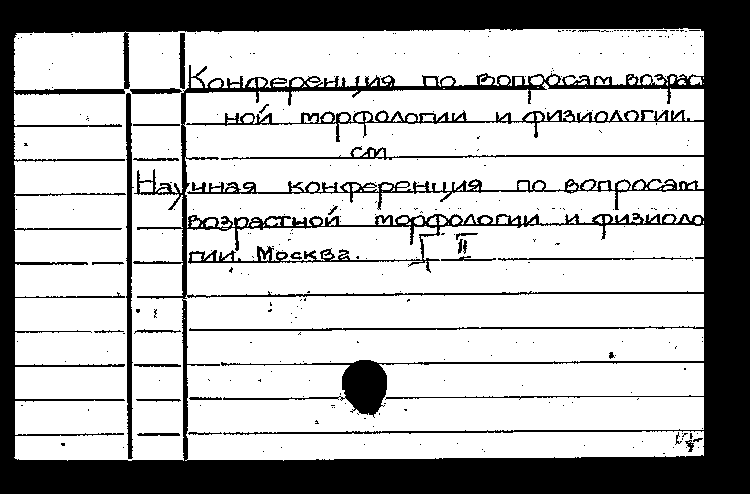 Конференция по вопросам возраст
ной морфологии и физиологии.
см.
Научная конференция по вопросам
возрастной морфологии и физиоло
гии. Москва. I II